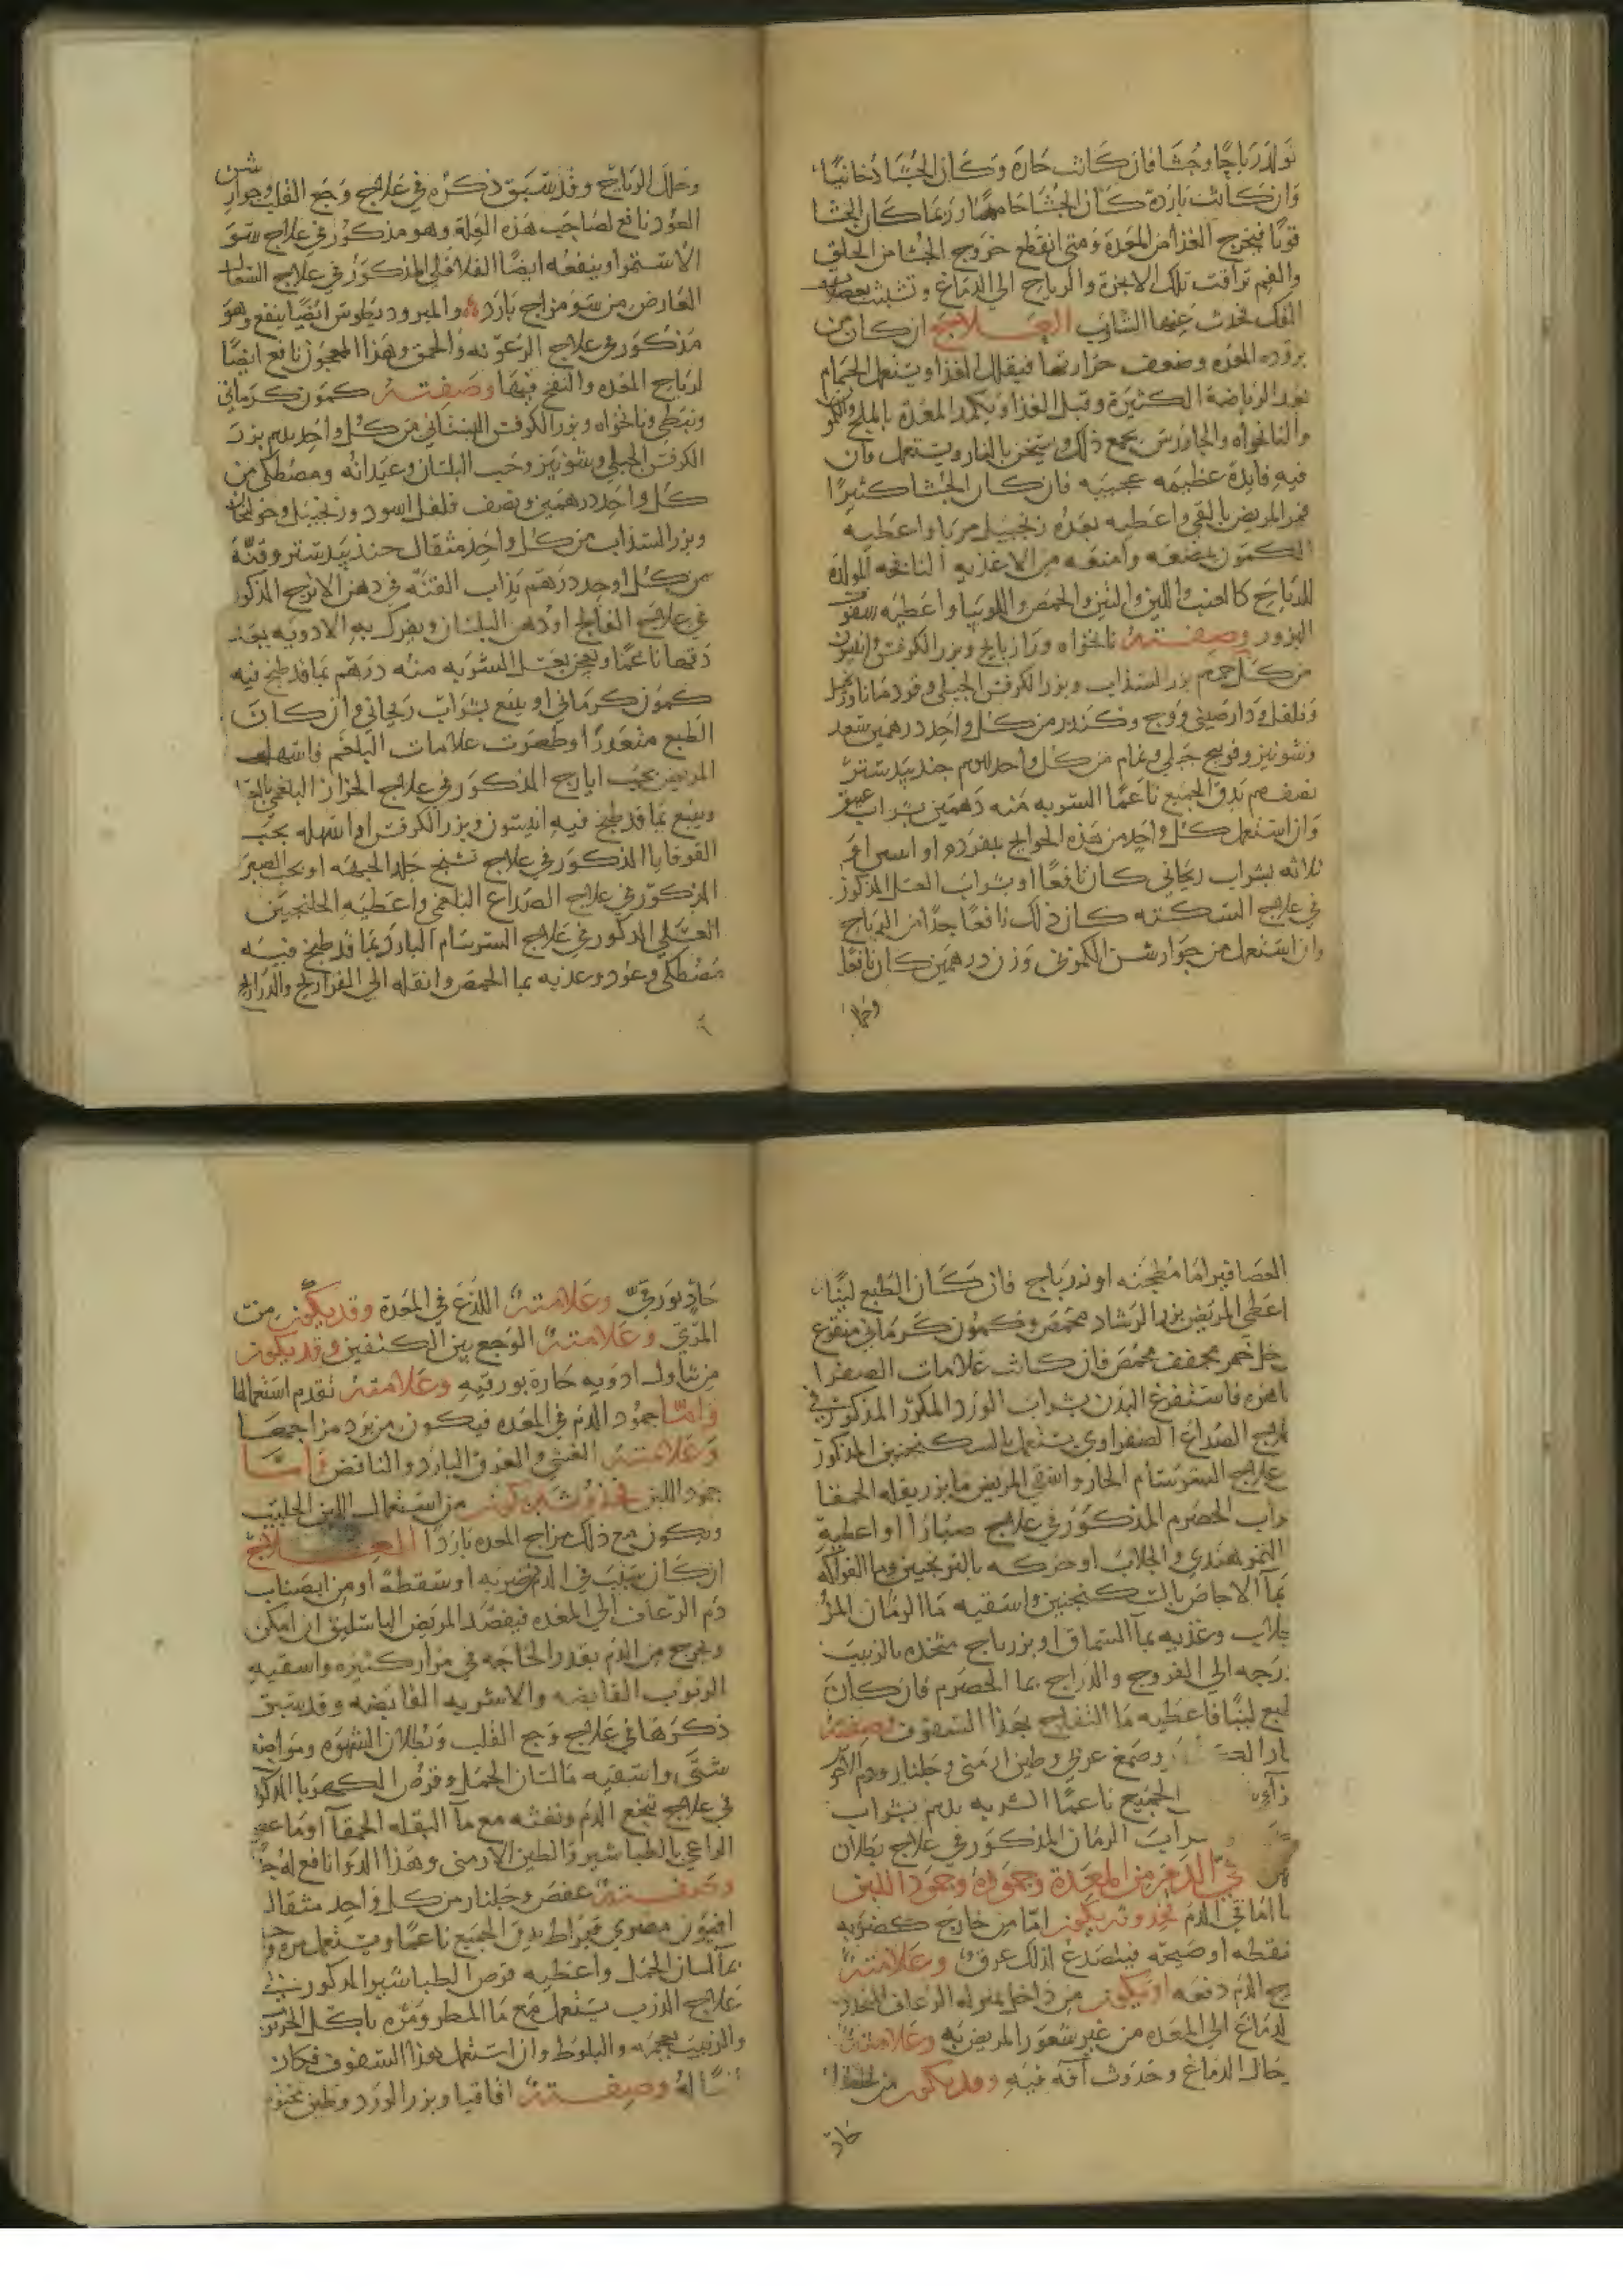 تولد رياحًا وجشا فان كانت حارة وكان الجشا دخانيًا
وان كانت باردة كان الجشا حامضًا وربما كان الجشا
قويًا فيخرج الغذا من المعدة ومتى انقطع خروج الجشا من الحلق
والفم تراقت تلك الابخرة والرياح الى الدماغ وتشبثت بعضلات
الفك فحدث عنها التثاوب العلاج ان كان من
برودة المعدة وضعف حرارتها فيقلل الغذا ويستعمل الحمام
بعد الرياضة الكثيرة وقبل الغذا ويكمد المعدة بالملح والكمون
والنانخواه والجاورس يجمع ذلك ويسخن بالنار ويستعمل فان
فيه فايدة عظيمه عجيبه فان كان الجشا كثيرًا
فمر المريض بالقي واعطيه بعده زنجبيل مربا واعطيه
الكمون يمضغه وامنعه من الاغذيه النافخه المولدة
للرياح كالعنب واللبن والتين والحمص واللوبيا واعطيه سفوف
البزور وصفته نانخواه ورازيانج وبزر الكرفس وانيسون
من كل بزر السذاب وبزر الكرفس الجبلي وقردمانا وزنجبيل
وفلفل ودارصيني ووج وكندر من كل واحد درهمين سعد
وشونيز وفوتنج جبلي ونمام من كل واحد درهم جندبيدستر
نصف درهم يدق الجميع ناعمًا الشربه منه درهمين بشراب عتيق
وان استعمل كل واحد من هذه الحوايج بمفرده او
ثلاثه بشراب ريحاني كان نافعًا او بشراب العسل المذكور
في علاج السكته كان ذلك نافعًا جدًا من الرياح
وان استعمل من جوارشن الكموني وزن درهمين كان نافعًا
وحلل
وحلل الرياح وقد سبق ذكره في علاج وجع القلب وجوارشن
العود نافع لصاحب هذه العلة وهو مذكور في علاج سو
الاستمرا وينفعه ايضًا الفلافلي المذكور في علاج السعال
العارض من سو مزاج بارد والميرودبطوس ايضًا ينفع وهو
مذكور في علاج الرعونه والحمق وهذا المعجون نافع ايضًا
لرياح المعده والنفخ فيها وصفته كمون كرماني
ونبطي ونانخواه وبزر الكرفس البستاني من كل واحد بزر
الكرفس الجبلي وشونيز وحب البلسان وعيدانه ومصطكى من
كل واحد درهمين ونصف فلفل اسود وزنجبيل وخولنجان
وبزر السذاب من كل واحد مثقال جندبيدستر وقنّة
من كل واحد درهم يذاب القنّه في دهن الاترج المذكور
في علاج الفالج او دهن البلسان ويفرك به الادويه بعد
دقها ناعمًا ويعجن بعسل الشربه منه درهم بما قد طبخ فيه
كمون كرماني او يتبع بشراب ريحاني وان كان
الطبع متعذرًا وظهرت علامات البلغم فاسهل
المريض بحب ايارج المذكور في علاج الخراز البلغمي
ويتبع بما قد طبخ فيه انيسون وبزر الكرفس او اسهله بحب
القوقايا المذكور في علاج تشنج جلد الجبهه او بحب الصبر
المذكور في علاج الصداع البلغمي واعطيه الجلنجبين
العسلي المذكور في علاج السرسام البارد بما قد طبخ فيه
مصطكى وعود وغذيه بما الحمص وانقله الى الفراريج والدراريج
العصافير اما مطجنه او زرباج فان كان الطبع لينًا
اعطي المريض بزر الرشاد محمص وكمون كرماني منقوع
خل خمر مجفف محمص فان كانت علامات الصفرا
ظاهره فاستفرغ البدن بشراب الورد المكرر المذكور في
علاج الصداع الصفراوي يستعمل بالسكنجبين المذكور
علاج السرسام الحار واسقي المريض ما بزر بقله الحمقا
شراب الحصرم المذكور في علاج او اعطيه
التمر هندي والجلاب او حركه بالترنجبين وما الفواكه
بما الاجاص بالسكنجبين واسقيه ما الرمان المز
بجلاب وغذيه بما السماق او بزرباج متخذه بالزبيب
درجه الى الفروج والدراج بما الحصرم فان كان
الطبع لينًا فاعطيه ما التفاح بهذا السفوف وصفته
وصمغ عربي وطين ارمني وجلنار ودم الاخوين
الجميع ناعمًا الشربه درهم بشراب
شراب الرمان المذكور في علاج بطلان
في الدم من المعدة وجموده وجمود اللبن
اما قي الدم فحدوثه يكون اما من خارج كضربه
سقطه او صيحه فينصدع لذلك عرق وعلامته
خروج الدم دفعه او يكون من داخل بمنزله الرعاف المنحدر
الدماغ الى المعده من غير شعور المريض به وعلامته
حال الدماغ وحدوث آفه فيه وقد يكون من خلط
حاد
حاد بورقي وعلامته اللذع في المعدة وقد يكون من
المري وعلامته الوجع بين الكتفين وقد يكون
من تناول ادويه حارة بورقيه وعلامته تقدم استعمالها
واما جمود الدم في المعده فيكون من برد مزاجها
وعلامته الغشي والعرق البارد والنافض واما
جمود اللبن فحدوثه يكون من استعمال اللبن الحليب
ويكون مع ذلك مزاج المعده باردًا العلاج
ان كان سبب قي الدم ضربه او سقطه او من انصباب
دم الرعاف الى المعده فيفصد المريض الباسليق ان امكن
ويخرج من الدم بقدر الحاجه في مرار كثيره واسقيه
الربوب القابضه والاشربه القابضه وقد سبق
ذكرها في علاج وجع القلب وبطلان الشهوه ومواضع
شتى واسقيه ما لسان الحمل وقرص الكهربا المذكور
في علاج تنخع الدم ونفثه مع ما البقله الحمقا او ما عصى
الراعي بالطباشير والطين الارمني وهذا الدوا نافع له جدًا
وصفته عفص وجلنار من كل واحد مثقال
افيون مصري قيراط يدق الجميع ناعمًا ويستعمل
بما لسان الحمل واعطيه قرص الطباشير المذكور في
علاج الذرب يستعمل مع ما المطر ومره باكل
والزبيب بعجمه والبلوط وان استعمل هذا السفوف فكان
له وصفته اقاقيا وبزر الورد وطين مختوم